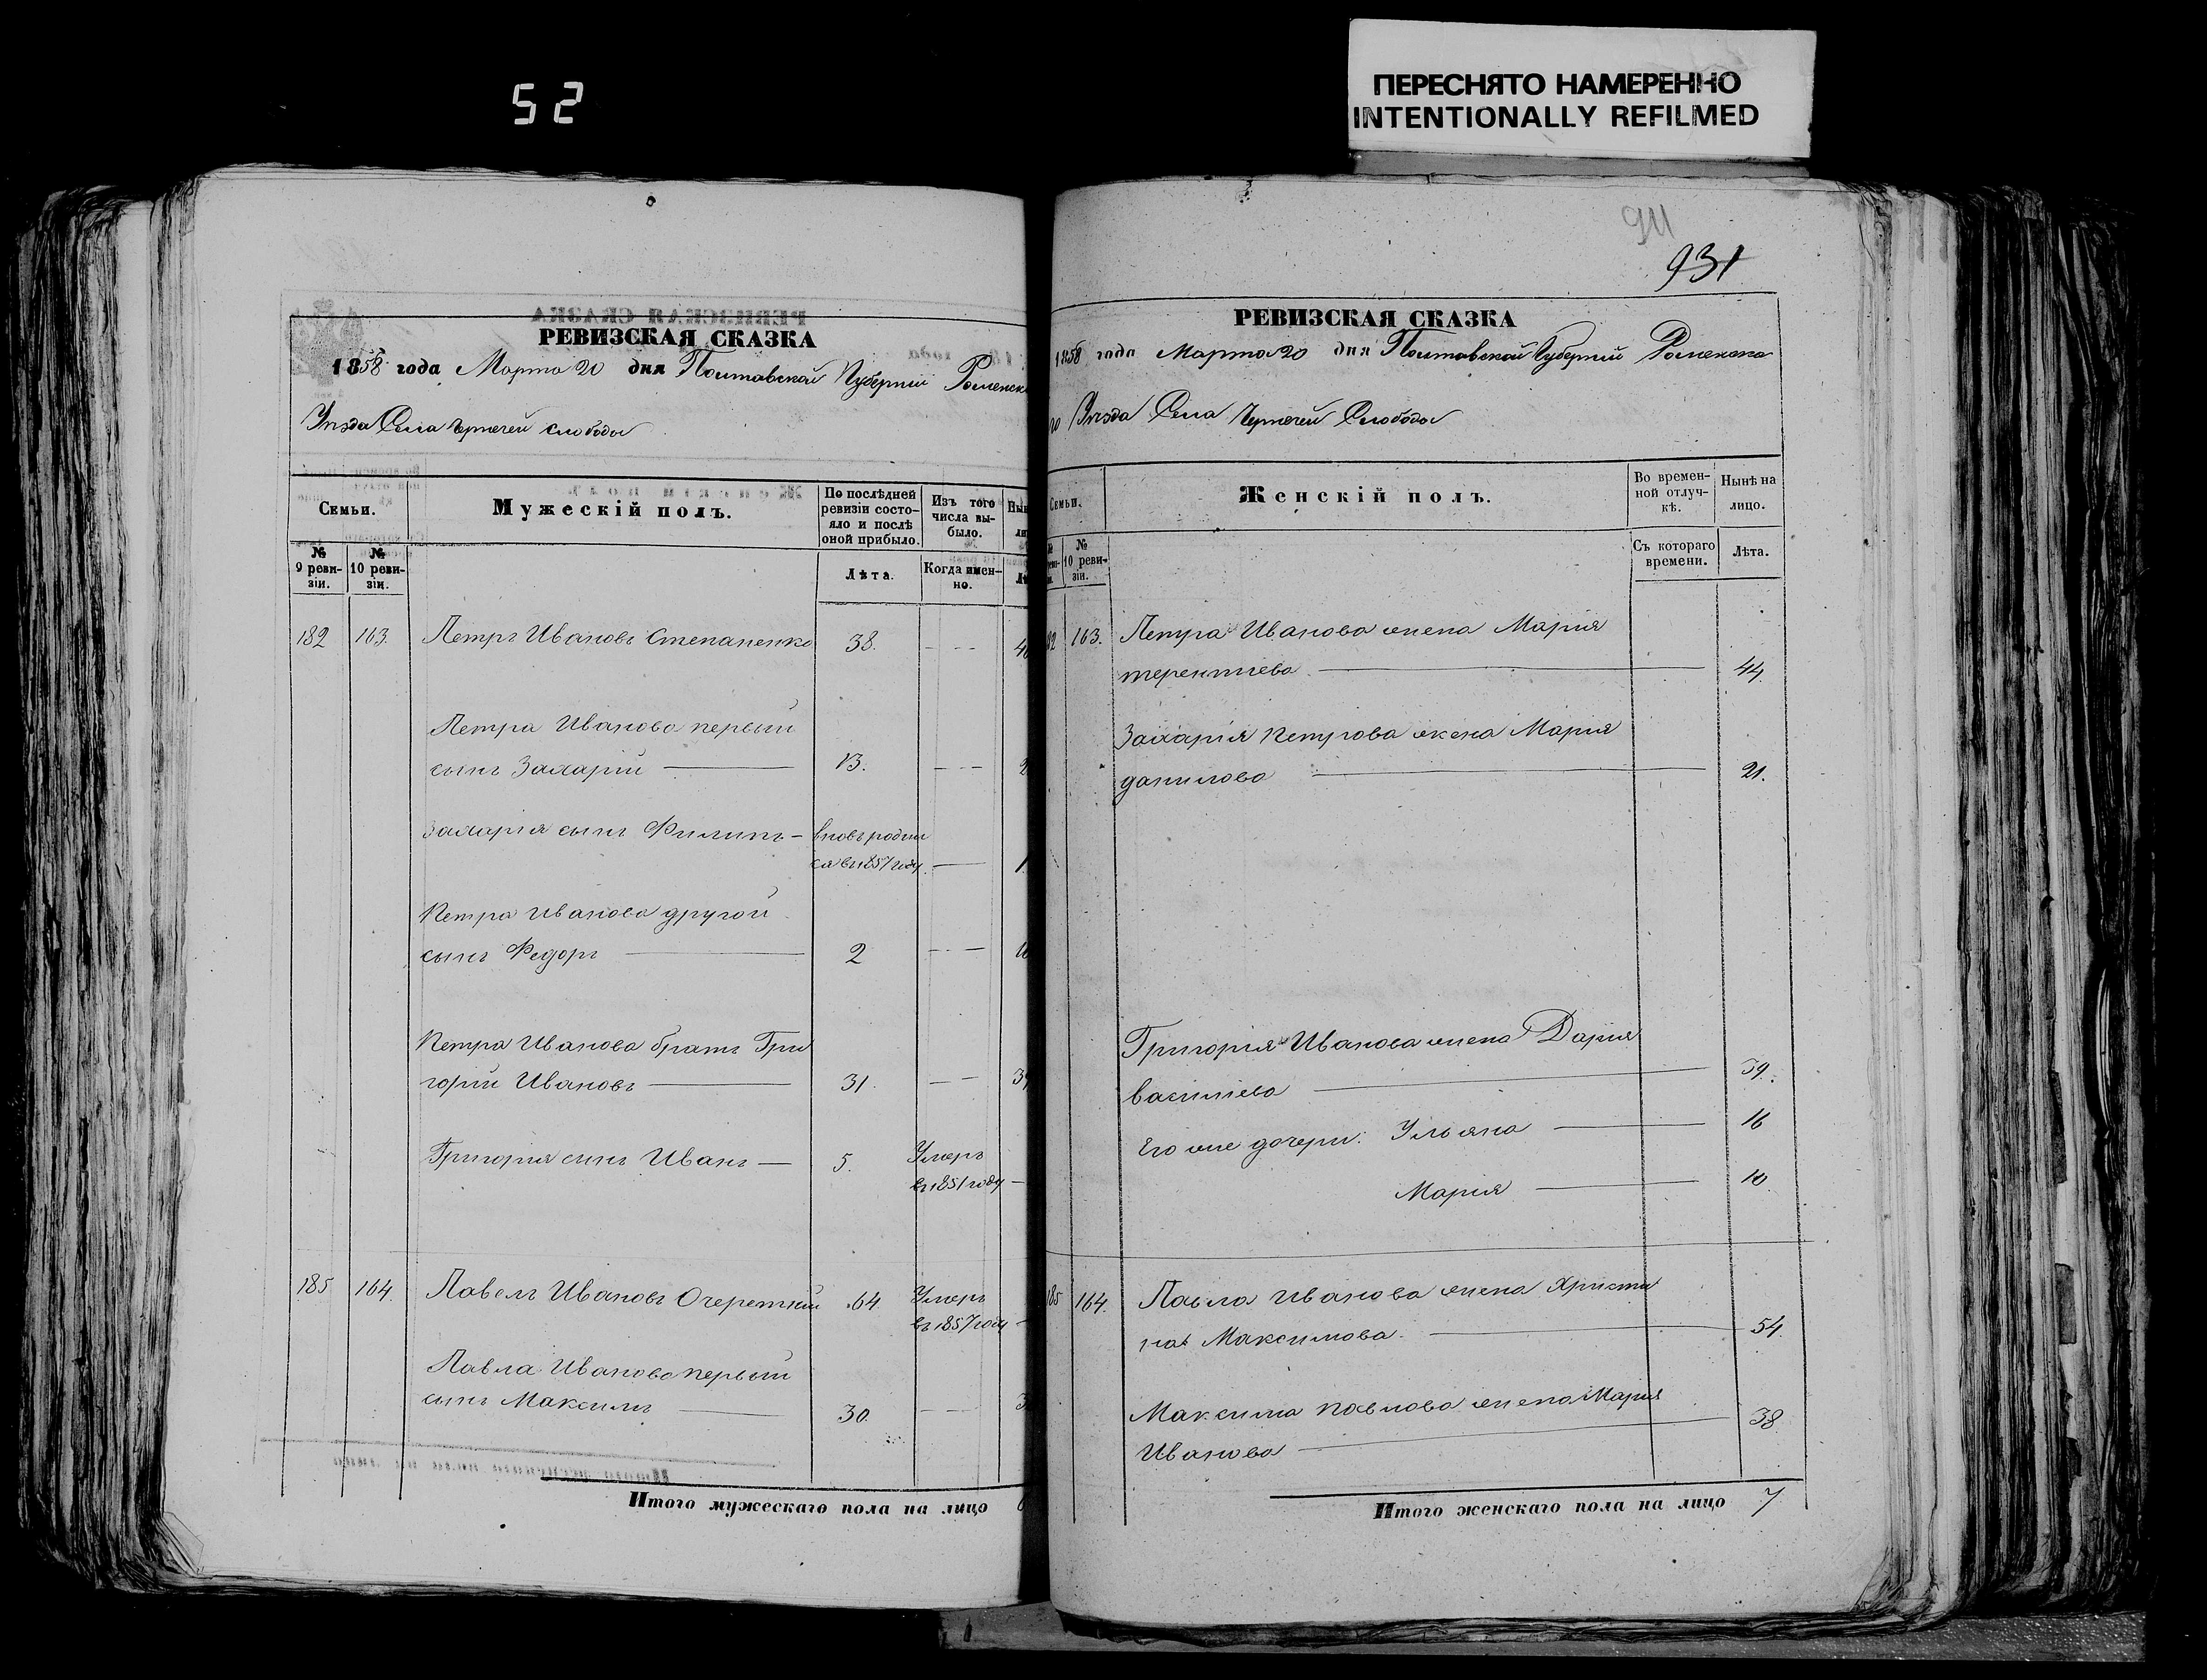 52
ПЕРЕСНЯТО НАМЕРЕННО
INTENTIONALLY REFILMED
РЕВИЗСКАЯ СКАЗКА
1858 года Марта 20 дня Полтавской Губернии Роменска
Уѣзда Села Чернечей слободы
Семьи.
Мужескій полъ.
По послѣдней ревизіи состояло и послѣ оной прибыло.
Изъ того числа выбыло.
№ 9 ревизіи.
№ 10 ревизіи.
Лѣта.
Когда именно.
182 163. Петръ Ивановъ Степаненко 38.
Петра Иванова первый
сынъ Захарій 13.
Захарія сынъ Филипъ вновь родил
ся въ 1857 году
Петра Иванова другой
сынъ Федоръ 2
Петра Иванова братъ Гри
горій Ивановъ 31.
Григорія сынъ Иванъ 5. Умеръ
въ 1851 году
185 164. Павелъ Ивановъ Очереткий 64. Умеръ
въ 1857 году
Павла Иванова первый
сынъ Максимъ 30.
Итого мужескаго пола на лицо
931
РЕВИЗСКАЯ СКАЗКА
1858 года Марта 20 дня Полтавской Губерніи Роменска
го Уѣзда Села Чернечей Слободы
Семьи.
Женскій полъ.
Во временной отлучкѣ.
Нынѣ на лицо.
№ 10 ревизіи.
Съ котораго времени.
Лѣта.
82 163. Петра Иванова жена Мария
терентиева 44.
Захарія петрова жена Мария
данилова 21.
Григорія Иванова жена Дария
василиева 39.
Его же дочери: Ульяна 16
Мария 10.
185 164. Павла Иванова жена Христи
на Максимова. 54.
Максима павлова жена Мария
Иванова 38.
Итого женскаго пола на лицо 7